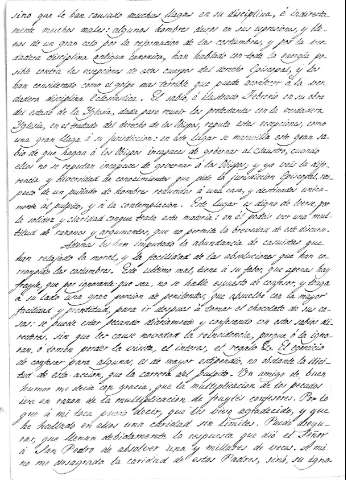 sino que le han causado muchas llagas en su disciplina, é indirecta-
mente muchos males: algunos hombres duros en sus expresiones, y lle-
nos de un gran celo por la reformacion de las costumbres, y por la ver-
dadera disciplina antigua canonica, han hablado con toda la energia po-
sible contra las exempciones de estos cuerpos del derecho Episcopal, y los
han considerado como el golpe mas terrible que pudo acontecer á la ver-
dadera disciplina Eclesiastica. El sabio é Illustrisimo en su obra
del estado de la Iglesia, dada para reunir los protestantes con la verdadera
Iglesia, en el tratado del derecho de los Obispos, reputa estas exempciones, como
una gran llaga á su jurisdiccion: en este lugar se maravilla este gran sa-
bio de que hagan á los Obispos incapaces de gobernar al Claustro, cuando
ellos no se reputan incapaces de gobernar á los Obispos, y ya veis la dife-
rencia y diversidad de conocimientos que pide la jurisdiccion Episcopal, res-
pecto de un instituto de hombres reducidos á una casa, y destinados unica-
mente al pulpito, y á la contemplacion. Este lugar es digno de leerse, por
la solidez y claridad con que trata esta materia: en él podeis ver una mul-
titud de razones y argumentos, que no permite la brevedad de este discurso.
Ademas les han imputado la abundancia de casuistas que
han relajado la moral, y la facilidad de las absoluciones que han co-
rrompido las costumbres. Este ultimo mal, tiene á su favor, que apenas hay
frayle, que por ignorante que sea, no se halle expuesto de confesor, y traiga
á su lado una gran porcion de penitentes, que absuelve con la mayor
facilidad y prontitud, para ir despues á tomar el chocolate de sus ca-
sas: se puede estar pecando diariamente y confesando con estos sabios di-
rectores, sin que les cause novedad la reincidencia, porque ó la igno-
ran, ó temen perder la visita, el interes, el regalo &c. El exercicio
de confesor para algunos es de mayor extipendio, no obstante la dici-
tud de esta accion, que la carrera del pulpito. Un amigo de buen
humor me decia con gracia, que la multiplicacion de los pecados
iva en razon de la multiplicacion de frayles confesores. Por lo
que á mi toca puedo decir, que les vivo agradecido, y que
he hallado en ellos una caridad sin limites. Puedo asegu-
rar, que llenan debidamente la respuesta que dió el Señor
á San Pedro de absolver una y millares de veces. A mi
no me desagrada la caridad de estos Padres, sinó su igno-